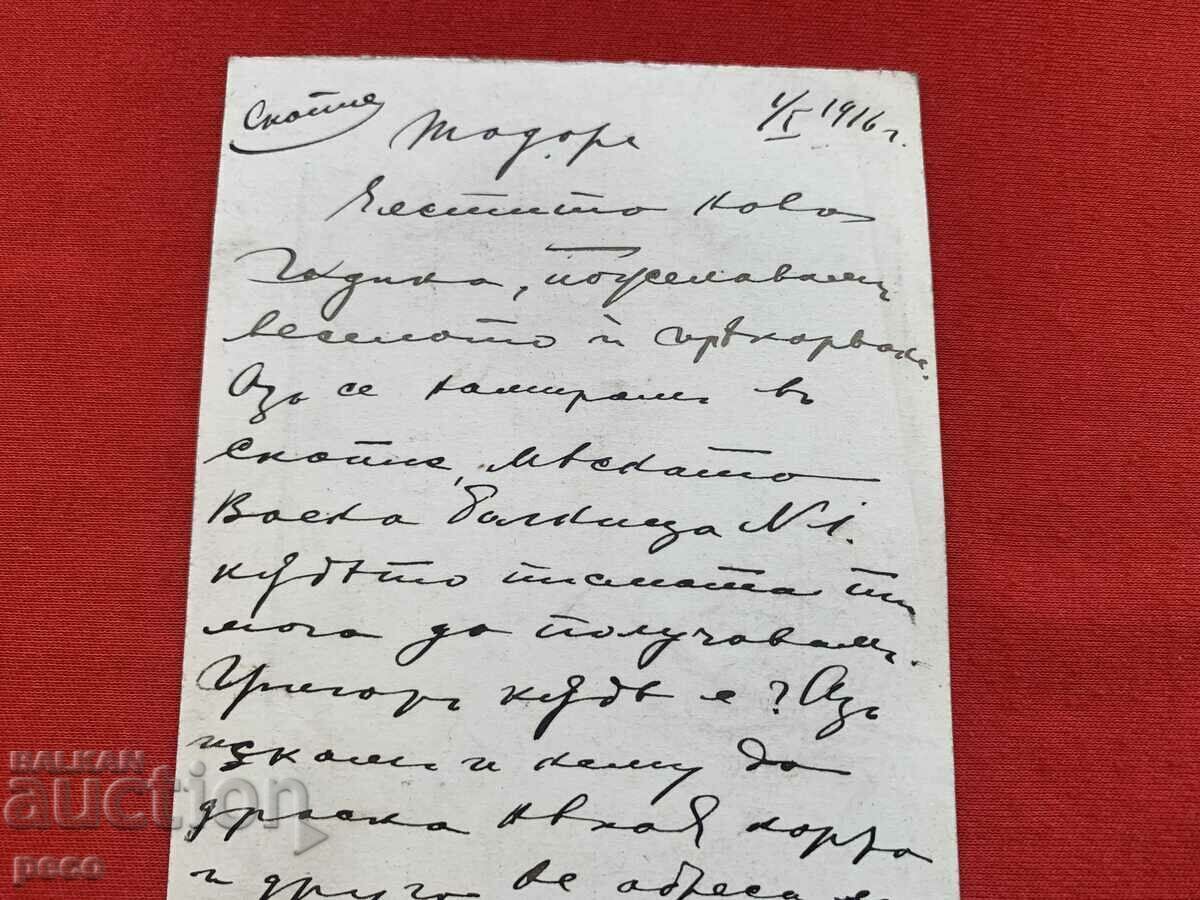 Скопие 1/I 1916 г.
Тодоре
Честито нова
Година, пожелавамъ
веселото и
Азъ се намирамъ въ
Скопие, мѣсната
Воена болница № 1.
кѫдѣто писмата ти
мога да получавамъ.
Григоръ кѫдѣ е? Азъ
искамъ и нему да
драсна нѣкоя карта
и друго не адреса
BALKAN
auction
peco